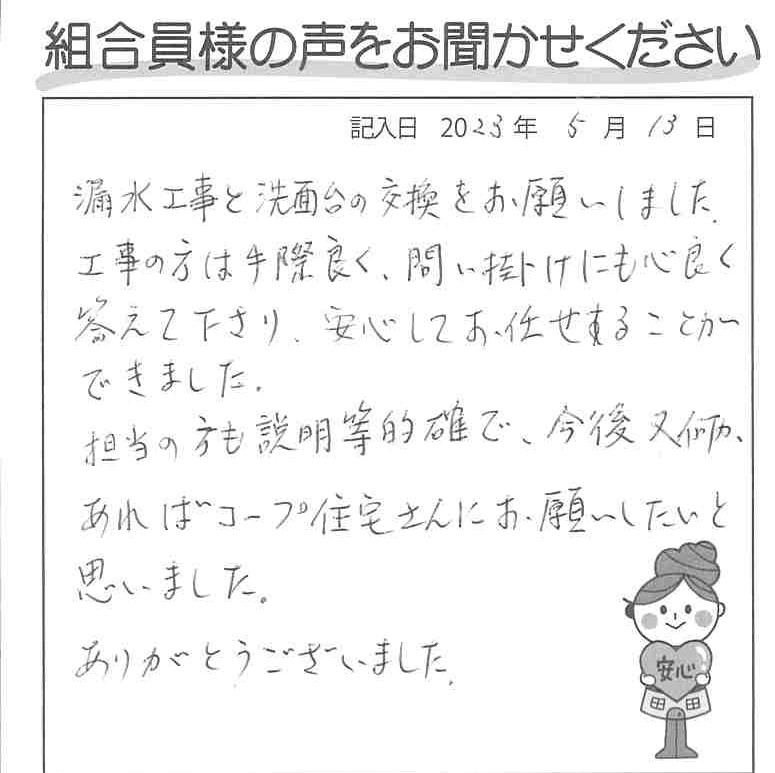 組合員様の声をお聞かせください
記入日 2023年 5月 13日
漏水工事と洗面台の交換をお願いしました.
工事の方は手際良く、問い掛けにも心良く
答えて下さり、安心してお任せすることが
できました.
担当の方も説明等的確で、今後又何か、
あればコープ住宅さんにお願いしたいと
思いました。
ありがとうございました.
安心